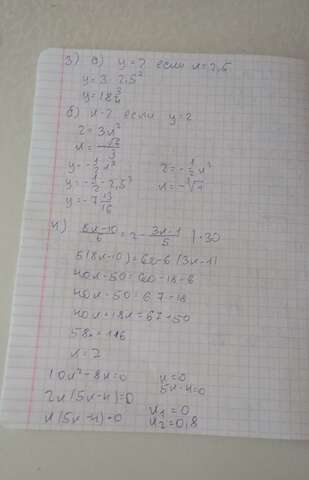 3) а) y=? если x=2,5
y=3·2,5²
y=18 3/4
б) x-? если y=2
2=3x²
x=-√6/3
y=-1/2x² 2=-1/2x²
y=-1/2·2,5² x=-√4
y=-7 13/16
4) (8x-10)/6=2-(3x-1)/5 |·30
5(8x-10)=60-6(3x-1)
40x-50=60-18-6
40x-50=67-18
40x+18x=67+50
58x=116
x=2
10x²-8x=0 x=0
2x(5x-4)=0 5x-4=0
x(5x-4)=0 x₁=0
x₂=0,8